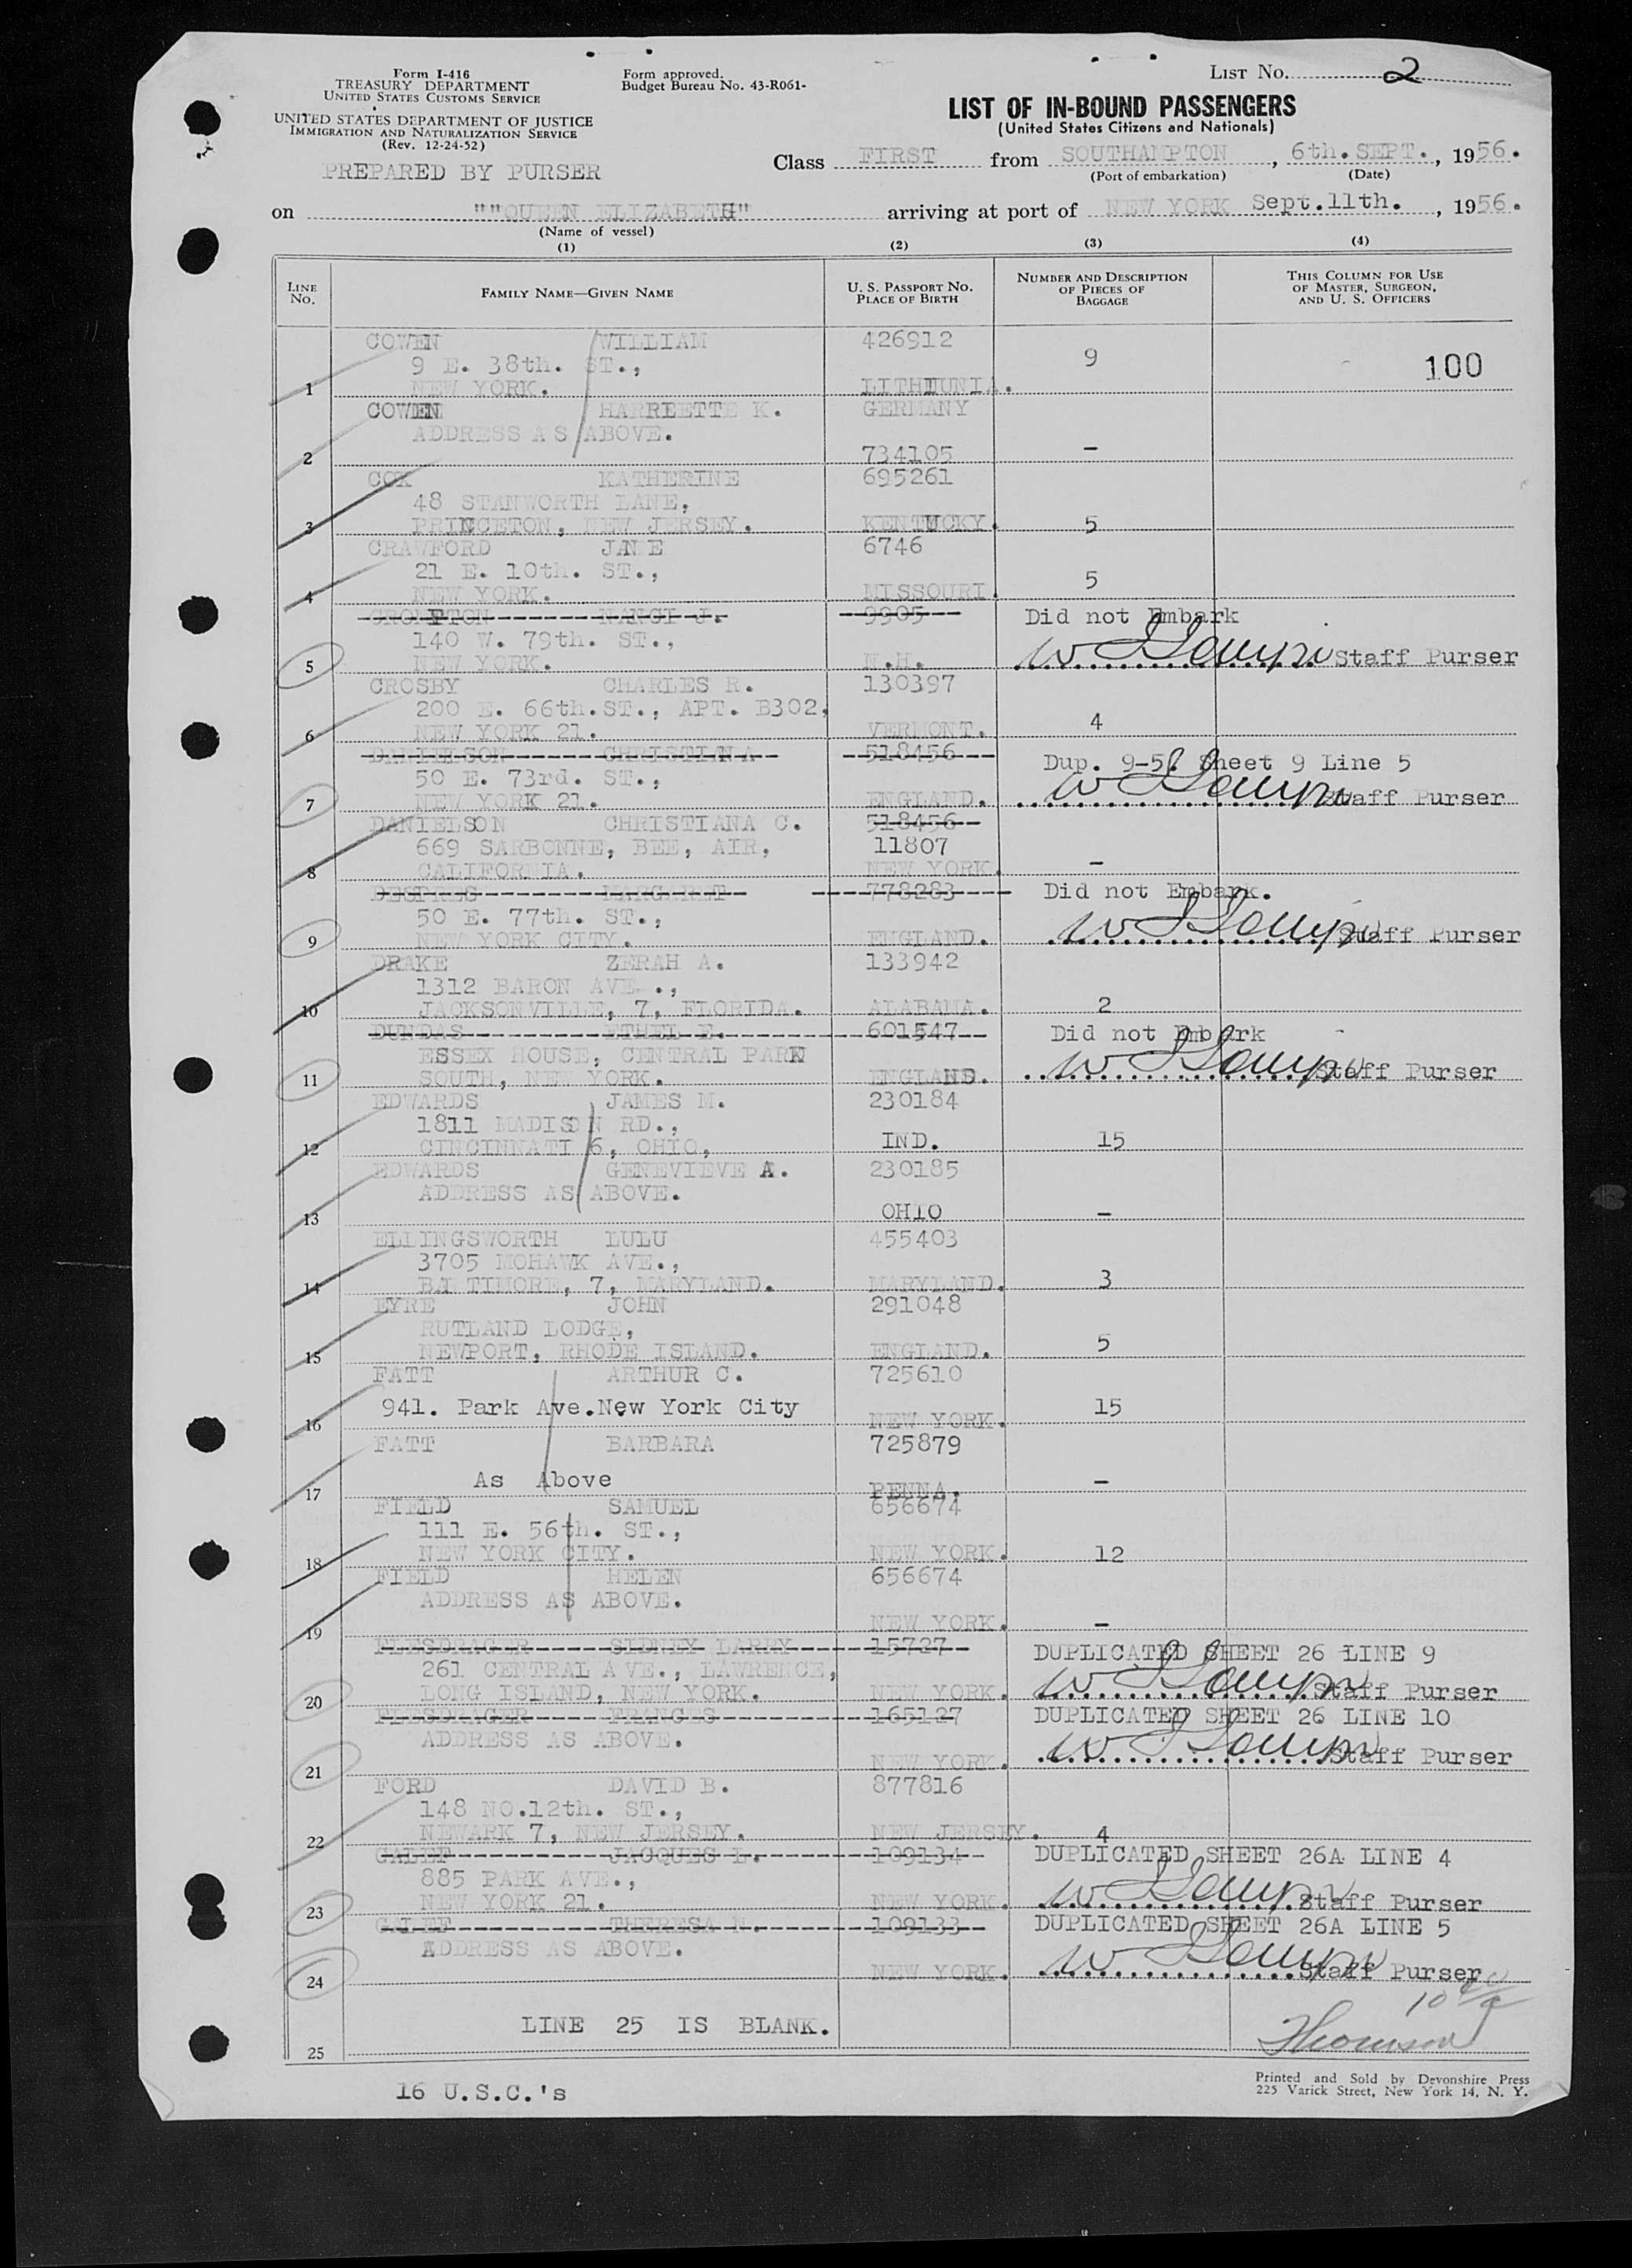 Form I-416
TREASURY DEPARTMENT
UNITED STATES CUSTOMS SERVICE
UNITED STATES DEPARTMENT OF JUSTICE
IMMIGRATION AND NATURALIZATION SERVICE
(Rev. 12-24-52)
PREPARED BY PURSER
Form approved.
Budget Bureau No. 43-R061-
LIST No. 2
LIST OF IN-BOUND PASSENGERS
(United States Citizens and Nationals)
Class FIRST from SOUTHAMPTON, 6th. SEPT., 1956.
(Port of embarkation) (Date)
on ""QUEEN ELIZABETH" arriving at port of NEW YORK Sept.11th., 1956.
(Name of vessel)
(1) (2) (3) (4)
LINE No. FAMILY NAME—GIVEN NAME U. S. PASSPORT NO. PLACE OF BIRTH NUMBER AND DESCRIPTION OF PIECES OF BAGGAGE THIS COLUMN FOR USE OF MASTER, SURGEON, AND U. S. OFFICERS
COWEN WILLIAM 426912
9 E. 38th. ST., 9 100
1 NEW YORK. LITHUNIA.
COWEN HARRIETTE K. GERMANY
ADDRESS AS ABOVE.
2 734105 -
COX KATHERINE 695261
48 STANWORTH LANE,
3 PRINCETON, NEW JERSEY. KENTUCKY. 5
CRAWFORD JANE 6746
21 E. 10th. ST., 5
4 NEW YORK. MISSOURI.
CROMPTON NANCI J. 9905 Did not Embark
140 W. 79th. ST.,
5 NEW YORK. N.H. Staff Purser
CROSBY CHARLES R. 130397
200 E. 66th.ST., APT. B302, 4
6 NEW YORK 21. VERMONT.
DANIELSON CHRISTINA 518456 Dup. 9-5. Sheet 9 Line 5
50 E. 73rd. ST.,
7 NEW YORK 21. ENGLAND. Staff Purser
DANIELSON CHRISTIANA C. 518456
669 SARBONNE, BEE, AIR, 11807
8 CALIFORNIA. NEW YORK. -
DESPRES MARGARET 778283 Did not Embark.
50 E. 77th. ST.,
9 NEW YORK CITY. ENGLAND. Staff Purser
DRAKE ZERAH A. 133942
1312 BARON AVE .,
10 JACKSONVILLE, 7, FLORIDA. ALABAMA. 2
DUNDAS ETHEL E. 601547 Did not Embark
ESSEX HOUSE, CENTRAL PARK
11 SOUTH, NEW YORK. ENGLAND. Staff Purser
EDWARDS JAMES M. 230184
1811 MADISON RD.,
12 CINCINNATI 6, OHIO, IND. 15
EDWARDS GENEVIEVE A. 230185
ADDRESS AS ABOVE.
13 OHIO -
ELLINGSWORTH LULU 455403
3705 MOHAWK AVE.,
14 BALTIMORE, 7, MARYLAND. MARYLAND. 3
EYRE JOHN 291048
RUTLAND LODGE,
15 NEWPORT, RHODE ISLAND. ENGLAND. 5
FATT ARTHUR C. 725610
941. Park Ave.New York City 15
16 NEW YORK.
FATT BARBARA 725879
As Above -
17 PENNA.
FIELD SAMUEL 656674
111 E. 56th. ST.,
18 NEW YORK CITY. NEW YORK. 12
FIELD HELEN 656674
ADDRESS AS ABOVE.
19 NEW YORK. -
FLESDRAGER SIDNEY LARRY 15727 DUPLICATED SHEET 26 LINE 9
261 CENTRAL AVE., LAWRENCE,
20 LONG ISLAND, NEW YORK. NEW YORK. Staff Purser
FLESDRAGER FRANCES 165127 DUPLICATED SHEET 26 LINE 10
ADDRESS AS ABOVE.
21 NEW YORK. Staff Purser
FORD DAVID B. 877816
148 NO.12th. ST.,
22 NEWARK 7, NEW JERSEY. NEW JERSEY. 4
GALEF JACQUES L. 109134 DUPLICATED SHEET 26A LINE 4
885 PARK AVE.,
23 NEW YORK 21. NEW YORK. Staff Purser
GALEF THERESA N. 109133 DUPLICATED SHEET 26A LINE 5
ADDRESS AS ABOVE.
24 NEW YORK. Staff Purser
LINE 25 IS BLANK.
25 Thomson
16 U.S.C.'s
Printed and Sold by Devonshire Press
225 Varick Street, New York 14, N. Y.